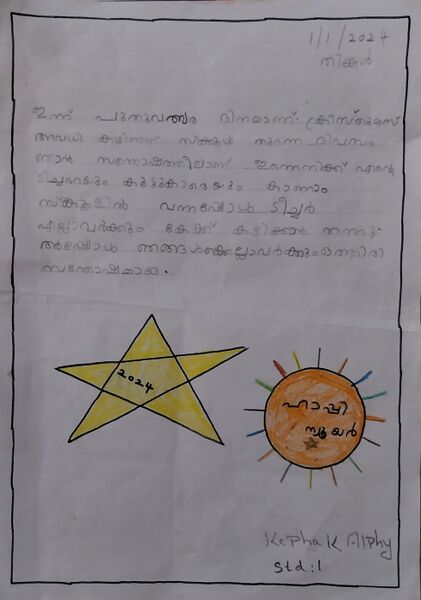 1/1/2024
തിങ്കൾ
ഇന്ന് പുതുവത്സര ദിനമാണ്. ക്രിസ്തുമസ്
അവധി കഴിഞ്ഞ് സ്കൂൾ തുറന്ന ദിവസം
ഞാൻ സന്തോഷത്തിലാണ് ഇന്നെനിക്ക് എന്റെ
ടീച്ചറെയും കൂട്ടുകാരെയും കാണാം
സ്കൂളിൽ വന്നപ്പോൾ ടീച്ചർ
എല്ലാവർക്കും കേക്ക് കഴിക്കാൻ തന്നു.
അപ്പോൾ ഞങ്ങൾക്കെല്ലാവർക്കും ഒത്തിരി
സന്തോഷമായി.
2024
ഹാപ്പി
ന്യൂയർ
Kepha K Alphy
Std:1